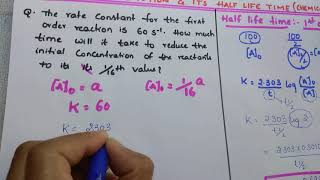 & ITS HALF LIFE TIME (CHEMIC
Q. The rate Constant for the first
order reaction is 60 s⁻¹. How much
time will it take to reduce the
initial Concentration of the reactants
to its 1/16th value?
[A]₀ = a
[A]₀ = 1/16 a
K = 60
K = 2303
Half life time:- 1st
100
100/2
[A]₀
[A]₀
K = 2.303 log 2
t½
= 2.303×0.3010
t½